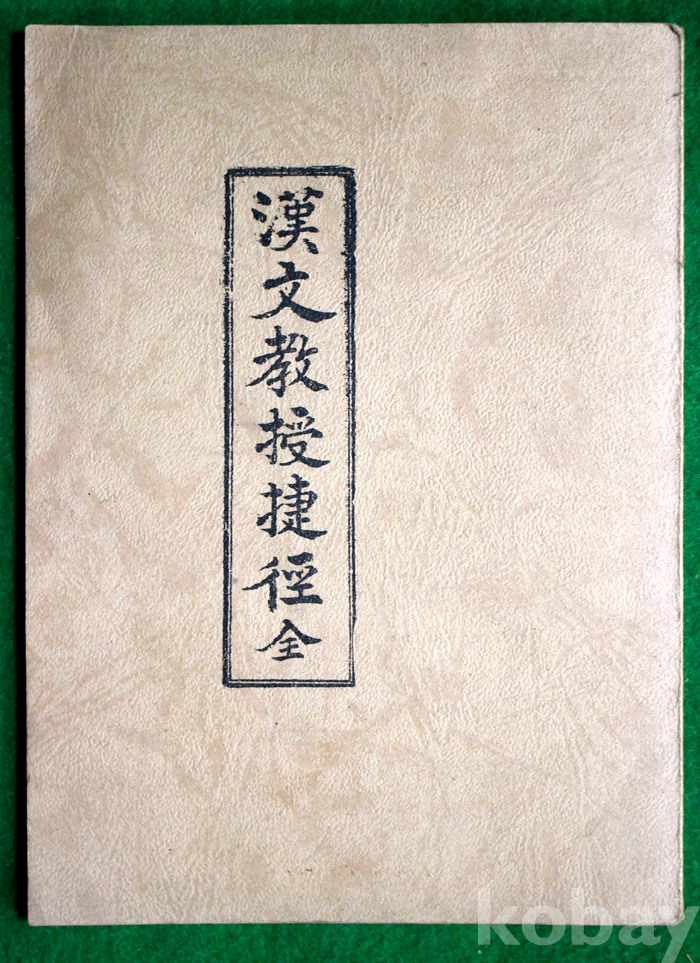 漢文教授捷徑全
kobay